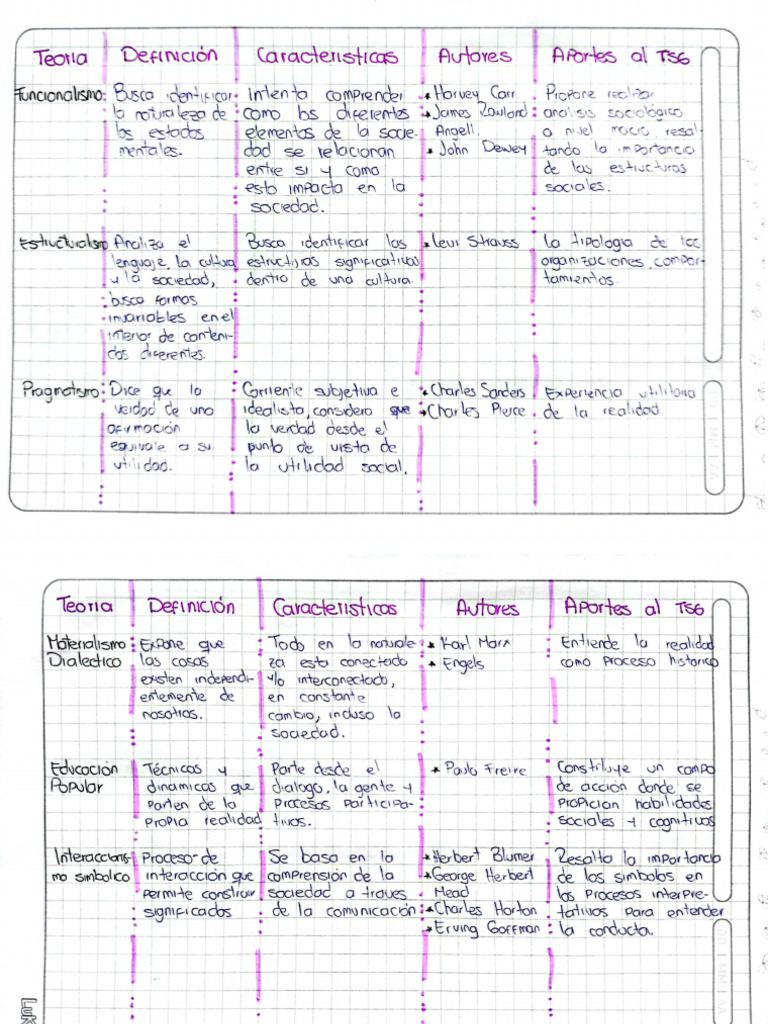 Teoria Definición Caracteristicas Autores Aportes al TSG
Funcionalismo: Busca identificar
la naturaleza de
los estados
mentales.
Intenta comprender
como los diferentes
elementos de la socie-
dad se relacionan
entre si y como
esto impacta en la
sociedad.
* Harvey Carr
* James Rowland
Angell.
* John Dewey
Propone realizar
analisis sociológico
a nivel macro, resal-
tando la importancia
de las estructuras
sociales.
Estructuralismo
Analiza el
lenguaje, la cultura
y la sociedad,
busca formas
invariables en el
interior de conteni-
dos diferentes.
Busca identificar las
estructuras significativas
dentro de una cultura.
* Levi Strauss
La tipologia de las
organizaciones, compor-
tamientos.
Pragmatismo:
Dice que la
verdad de una
afirmación
equivale a su
utilidad.
Corriente subjetiva e
idealista, considera que
la verdad desde el
punto de vista de
la utilidad social.
* Charles Sanders
* Charles Pierce
Experiencia utilitaria
de la realidad
Teoria Definición Caracteristicas Autores Aportes al TSG
Materialismo
Dialectico
Expone que
las cosas
existen independi-
entemente de
nosotros.
Todo en la natural­e
za esta conectado
y/o interconectado,
en constante
cambio, incluso la
sociedad.
* Karl Marx
* Engels
Entiende la realidad
como proceso historico
Educación
Popular
Técnicas y
dinamicas que
parten de la
propia realidad
Parte desde el
dialogo, la gente y
procesos participa-
tivos.
* Paulo Freire
Constituye un campo
de acción donde se
propician habilidades
sociales y cognitivos
Interaccionis-
mo simbolico
Proceso de
interacción que
permite construir
significados
Se basa en la
comprensión de la
sociedad a traves
de la comunicación
* Herbert Blumer
* George Herbert
Mead
* Charles Horton
* Erving Goffman
Resalta la importancia
de los simbolos en
los procesos interpre-
tativos para entender
la conducta.